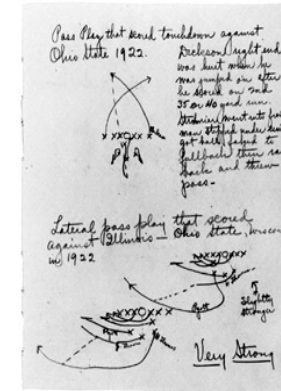 Pass Play that scored touchdown against
Ohio State 1922.
Dickson right end
was hurt when he
was jumped on after
he scored on 2nd
35 or 40 yard run.
went into
man stepped under
got ball, passed to
fullback then ran
back and threw
pass-
Lateral pass play that scored
against Illinois - Ohio State,
in 1922
Slightly
stronger
Very Strong